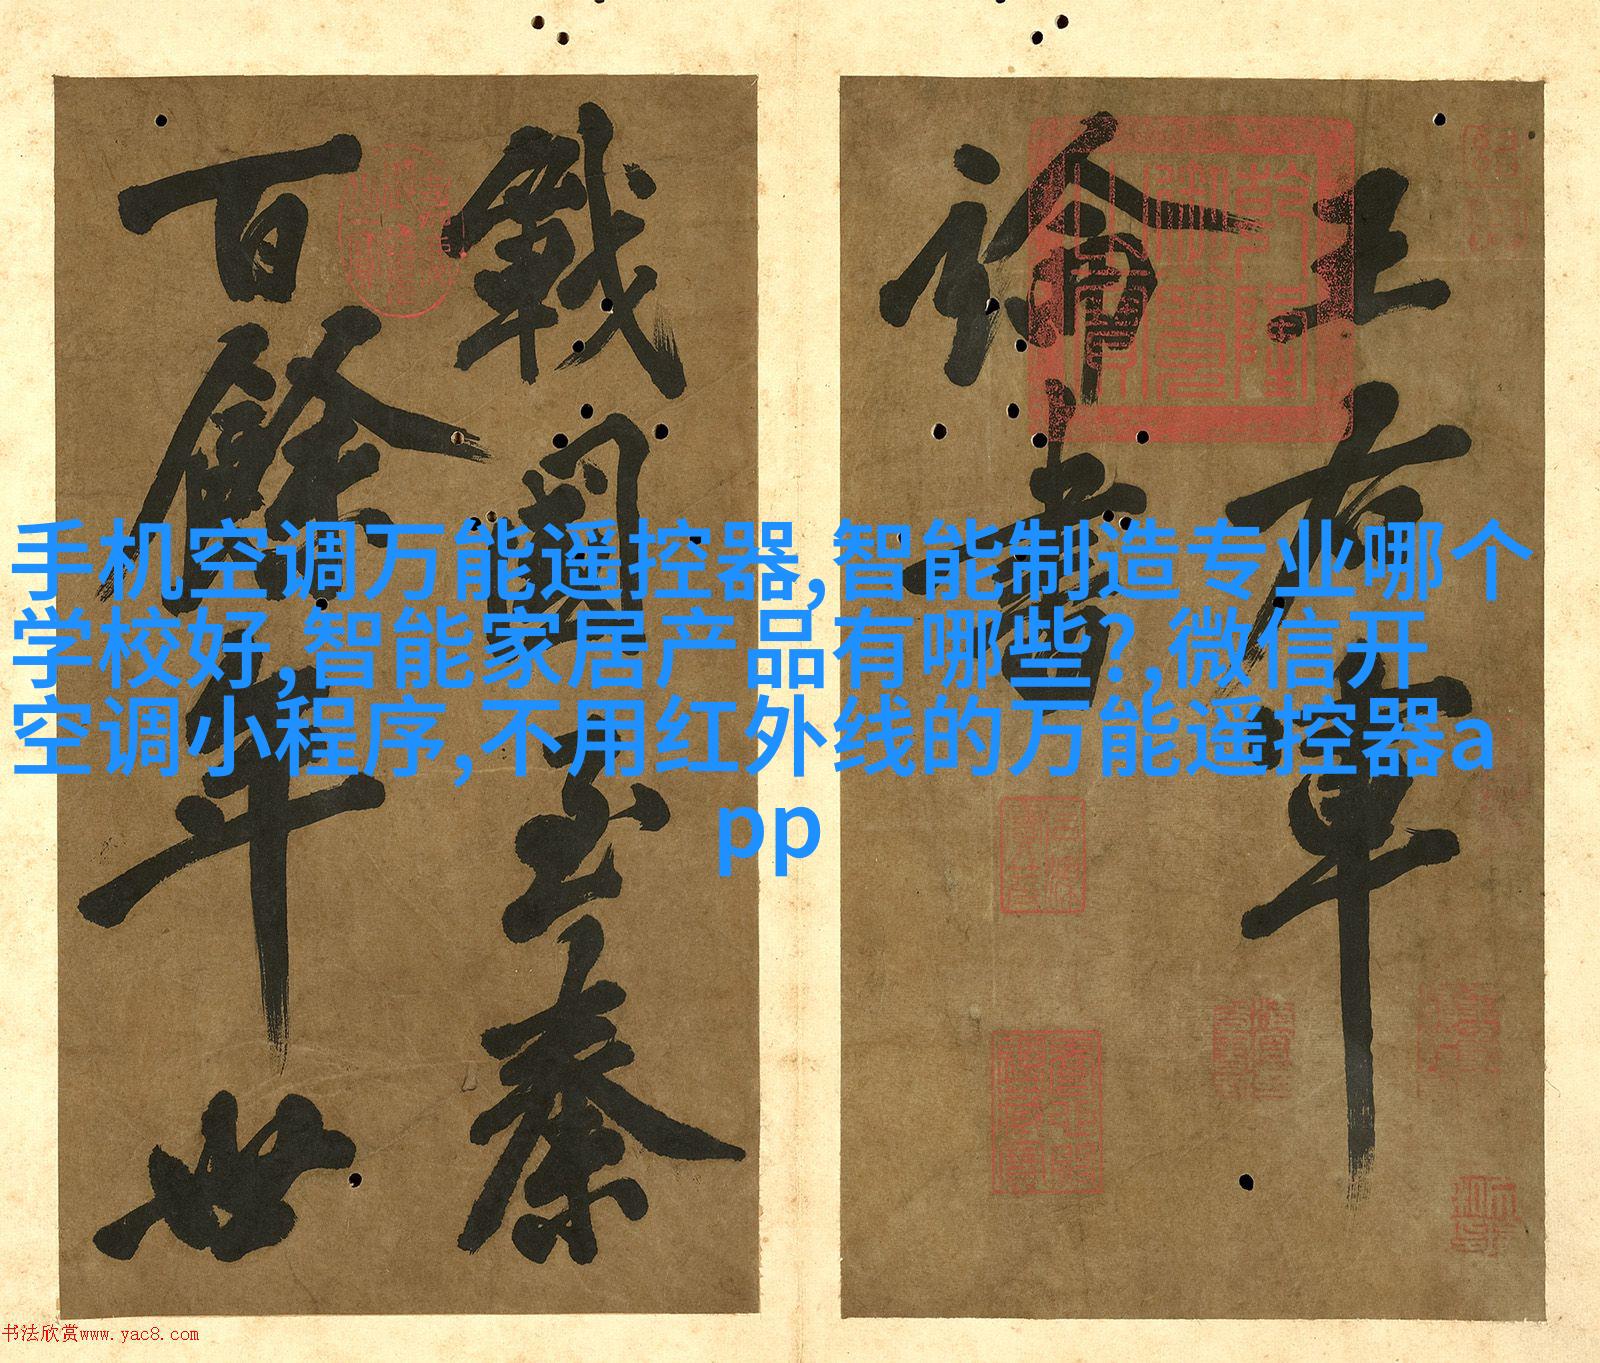 王右軍
論書
戰國至秦
百餘年世
手机空调万能遥控器,智能制造专业哪个
学校好,智能家居产品有哪些?,微信开
空调小程序,不用红外线的万能遥控器a
pp
书法欣赏www.yac8.com